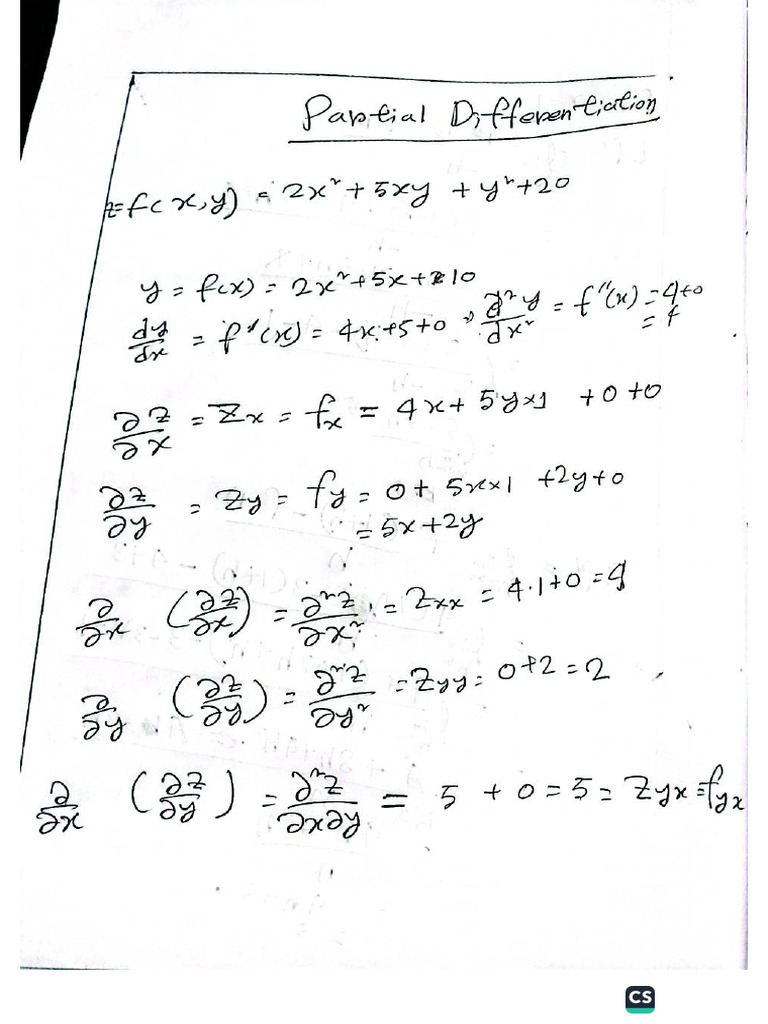 Partial Differentiation
z=f(x,y) = 2x² + 5xy + y² + 20
y = f(x) = 2x² + 5x + 10
dy/dx = f'(x) = 4x + 5 + 0, d²y/dx² = f''(x) = 4+0
= 4
∂z/∂x = Zx = fx = 4x + 5y×1 + 0 + 0
∂z/∂y = Zy = fy = 0 + 5x×1 + 2y + 0
= 5x + 2y
∂/∂x (∂z/∂x) = ∂²z/∂x² = Zxx = 4·1+0 = 4
∂/∂y (∂z/∂y) = ∂²z/∂y² = Zyy = 0+2 = 2
∂/∂x (∂z/∂y) = ∂²z/∂x∂y = 5 + 0 = 5 = Zyx = fyx
CS